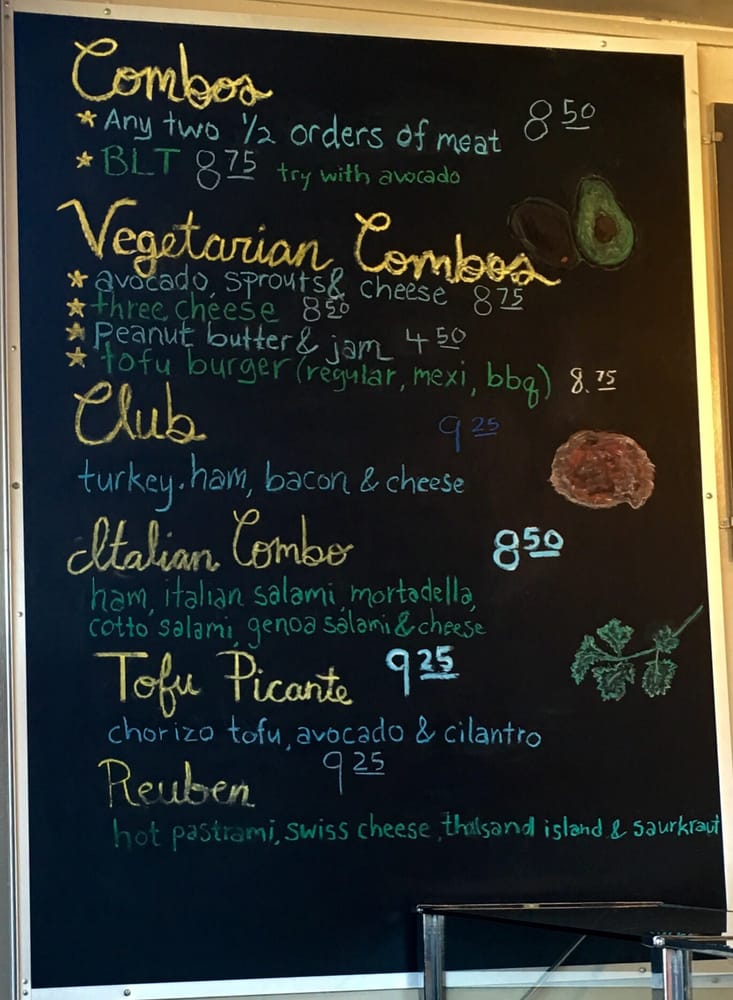 Combos
* Any two 1/2 orders of meat 8 50
* BLT 8 75 try with avocado
Vegetarian Combos
* avocado, sprouts & cheese 8 75
* three cheese 8 50
* Peanut butter & jam 4 50
* tofu burger (regular, mexi, bbq) 8.75
Club 9 25
turkey. ham, bacon & cheese
Italian Combo 8 50
ham, italian salami, mortadella,
cotto salami, genoa salami & cheese
Tofu Picante 9 25
chorizo tofu, avocado & cilantro
Reuben 9 25
hot pastrami, swiss cheese, thousand island & saurkraut